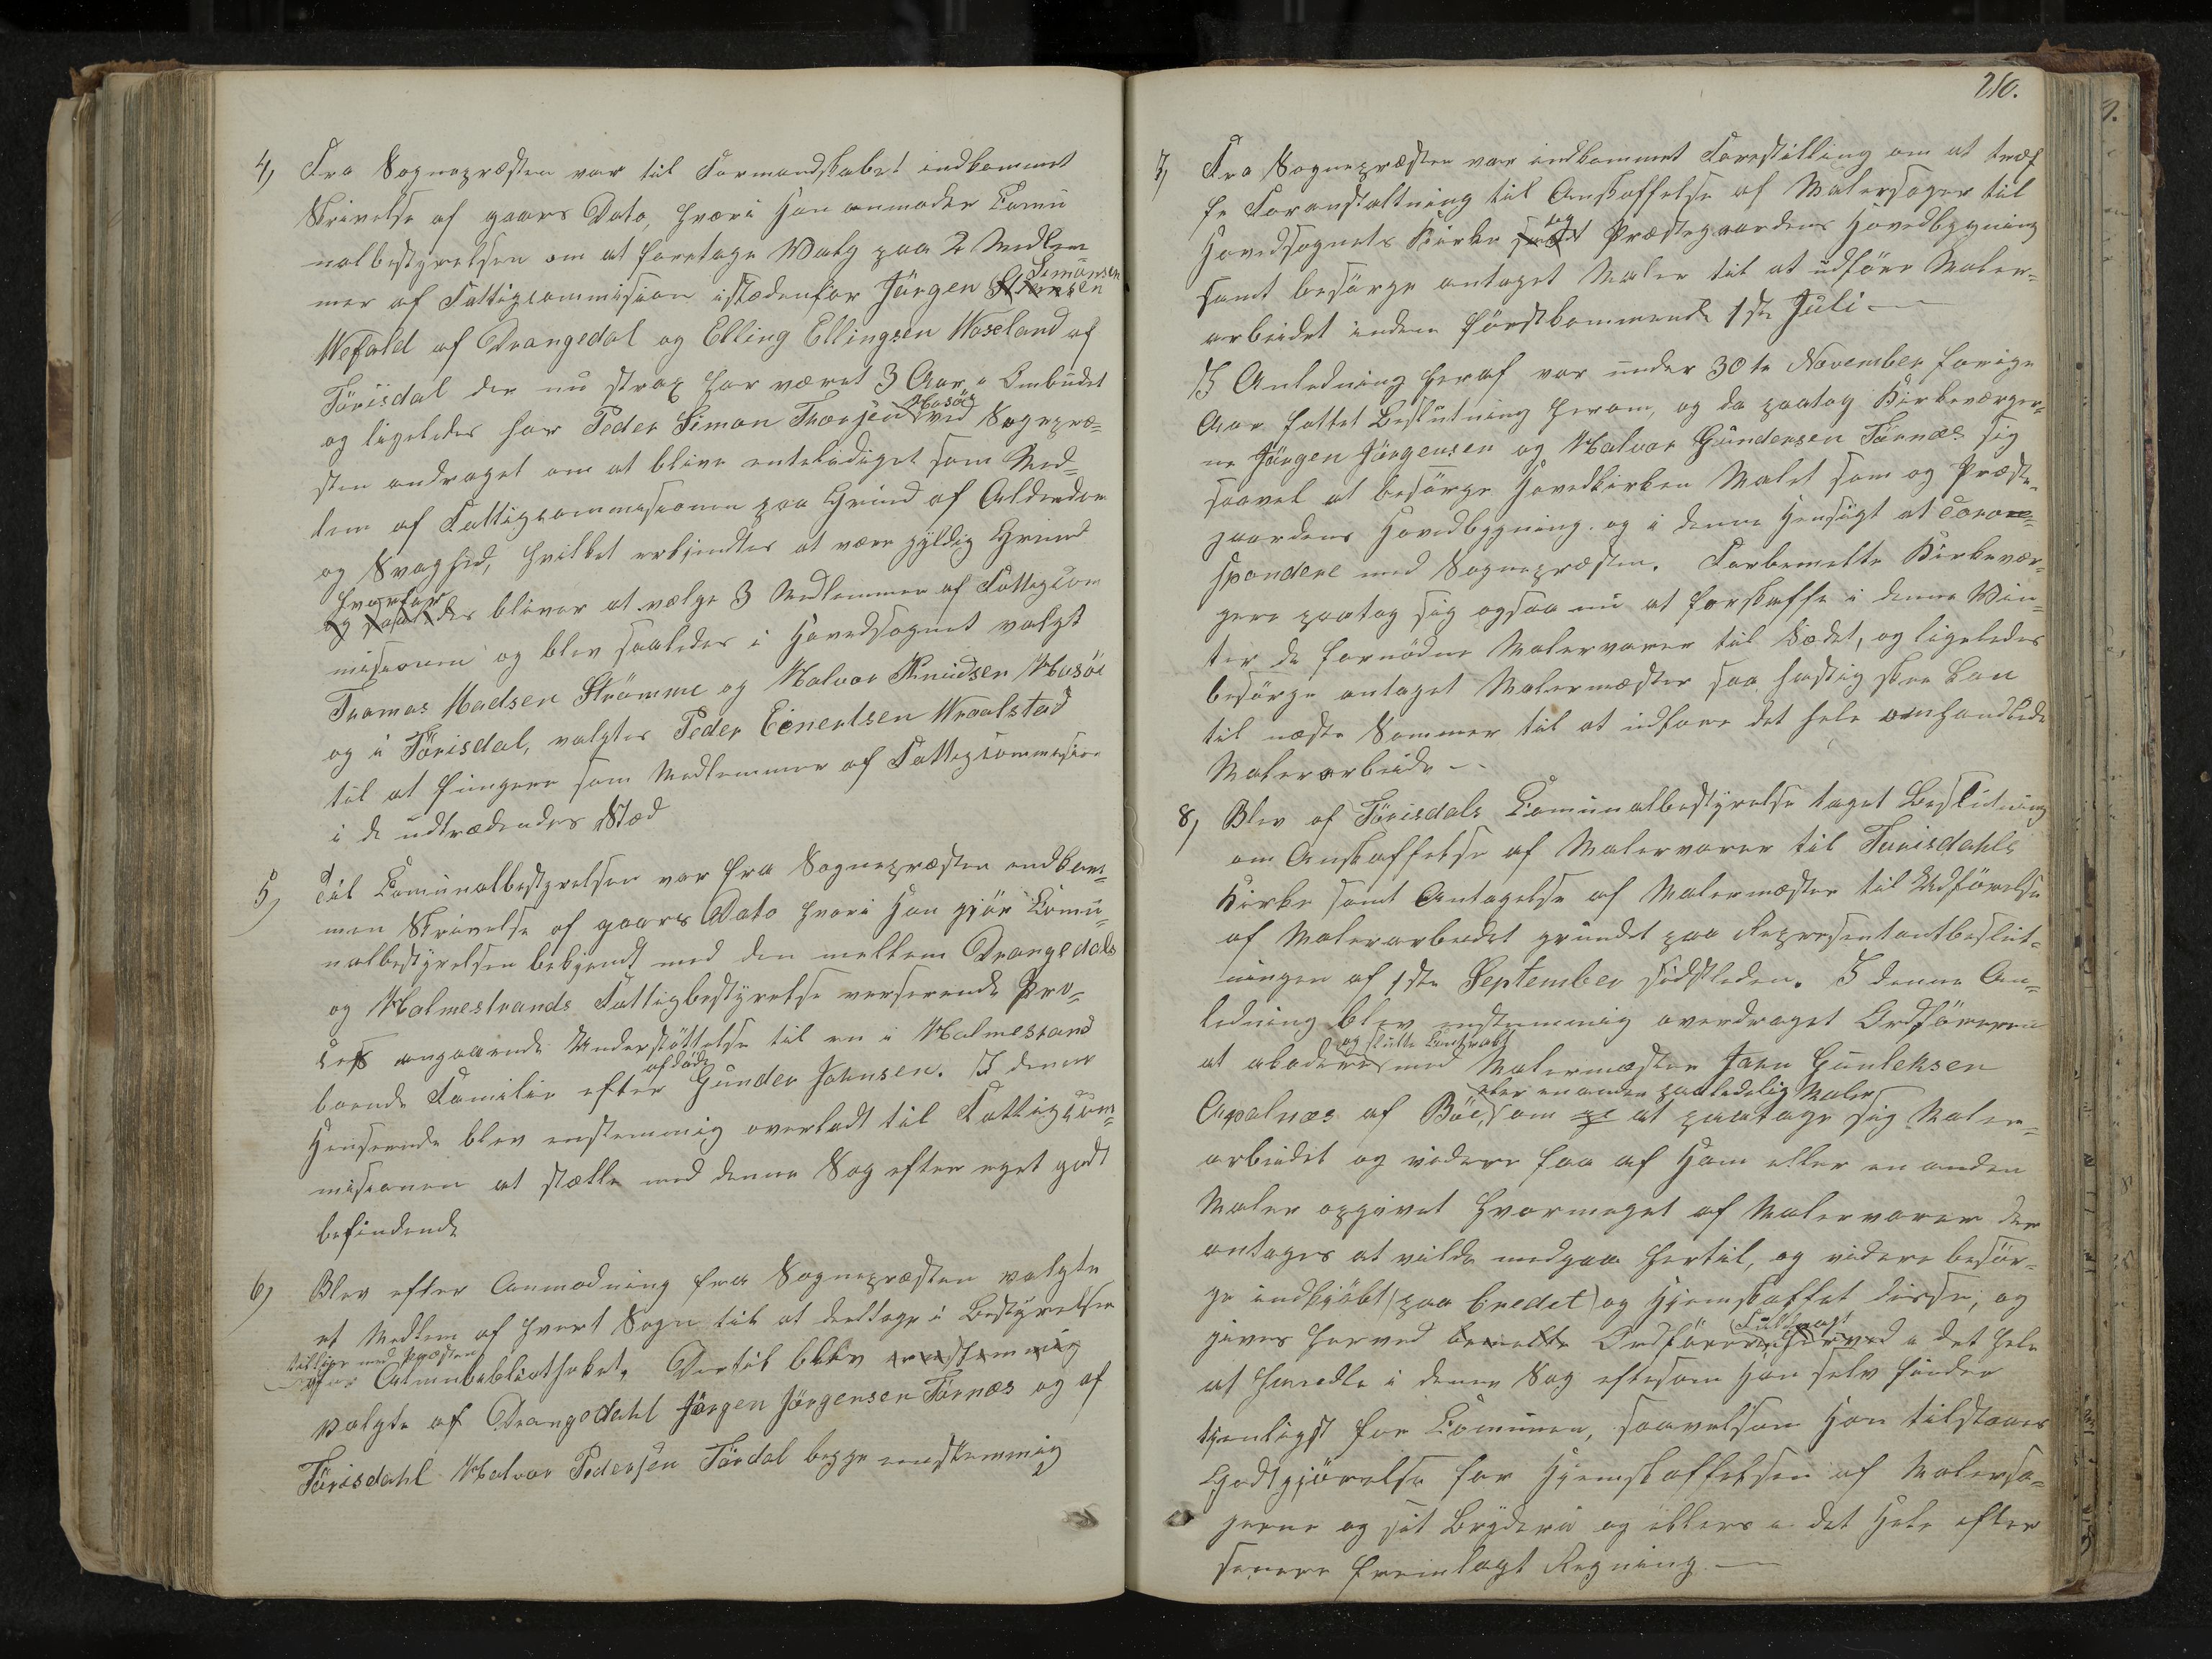 4, Fra Sognepræsten var til Formandskabet indkommet
Skrivelse af gaars Dato, hvori Han anmoder Comu
nalbestyrelsen om at foretage Valg paa 2 Medlem
Simonsen
mer af Fattigcommision istædenfor Jörgen
Wefald af Drangedal og Elling Ellingsen Waseland af
Törisdal der nu strax har været 3 Aar i Ombudet
Hosöe
og ligeledes har Peder Simon Thorsen ved Sognepræ=
sten andraget om at blive entlediget som Med=
lem af Fattigcommisionen paa Grund af Alderdom
og Svaghed, hvilket erkjendtes at være gyldig Grund
hvorfor
og saaledes bliver at vælge 3 Medlemmer af Fattigcom
misionen og blev saaledes i Hovedsognet valgt
Thomas Madsen Strömme og Halvor Knudsen Hosöe
og i Törisdal, valgtes Peder Einertsen Wraalstad
til at fungere som Medlemmer af Fattigcommision
i de udtrædendes Stæd
5, Til Comunalbestyrelsen var fra Sognepræsten indkom=
men Skrivelse af gaars Dato hvori Han gjör Comu=
nalbestyrelsen bekjendt med den mellem Drangedals
og Holmestrands Fattigbestyrelse verserende Pro=
cess angaaende Understöttelse til en i Holmestrand
afdöde
boende Familie efter Gunder Johnsen. I denne
Henseende blev enstemmig overladt til Fattigcom=
misionen at stelle med denne Sag efter eget godt
befindende
6, Blev efter Anmodning fra Sognepræsten valgte
et Medlem af hvert Sogn til at deeltage i Bestyrelsen
tillige med Præsten
over Almuebibliotheket, Dertil blev enstemmig
valgte af Drangedahl Jörgen Jörgensen Törnæs og af
Törisdahl Halvor Pedersen Tördal begge enstemmig
210.
7, Fra Sognepræsten var indkommet Forestilling om at træf
fe Foranstaltning til Anskaffelse af Malersager til
og
Hovedsognets Kirke samt Præstegaardens Hovedbygning
samt besörge antaget Maler til at udföre Maler=
arbeidet inden förstkommende 1ste Juli —
I Anledning heraf var under 30te November forige
Aar fattet Beslutning herom, og da paatog Kirkeværger=
ne Jörgen Jörgensen og Halvor Gundersen Törnæs sig
saavel at besörge Hovedkirken Malet som og Præste=
gaardens Hovedbygning. og i denne Hensigt at Corre=
spondere med Sognepræsten. Forbemelte Kirkevær=
gere paatog sig ogsaa nu at forskaffe i denne Vin=
ter de fornödne Malervarer til Stædet, og ligeledes
besörge antaget Malermæster saa hastig skee kan
til næste Sommer til at udföre det hele omhandlede
Malerarbeide —
8, Blev af Törisdals Comunalbestyrelse taget Beslutning
om Anskaffelse af Malervarer til Törisdahls
Kirke samt Antagelse af Malermæster til Udförelse
af Malerarbeidet grundet paa Representantbeslut=
ningen af 1ste September sidstleden. I denne An=
ledning blev enstemmig overdraget Ordföreren
og slutte Contrakt
at akodere med Malermæster Jörn Gunleksen
eller en anden paalidelig Maler
Apalnæs af Böe, om at paatage sig Maler=
arbeidet og videre faa af Ham eller en anden
Maler opgivet hvormeget af Malervarer der
antages at vilde medgaa hertil, og videre besör=
ge indkjöbt (paa Credet) og Hjemskaffet disse, og
Fuldmagt
gives herved bemelte Ordförer herved i det hele
at handle i denne Sag eftersom Han selv finder
tjenligst for Comunen, saavelsom Han tilstaaes
Godtgjörelse for Hjemskaffelsen af Malersa=
gerne og sit Bryderi og ellers i det Hele efter
senere fremlagt Regning. —